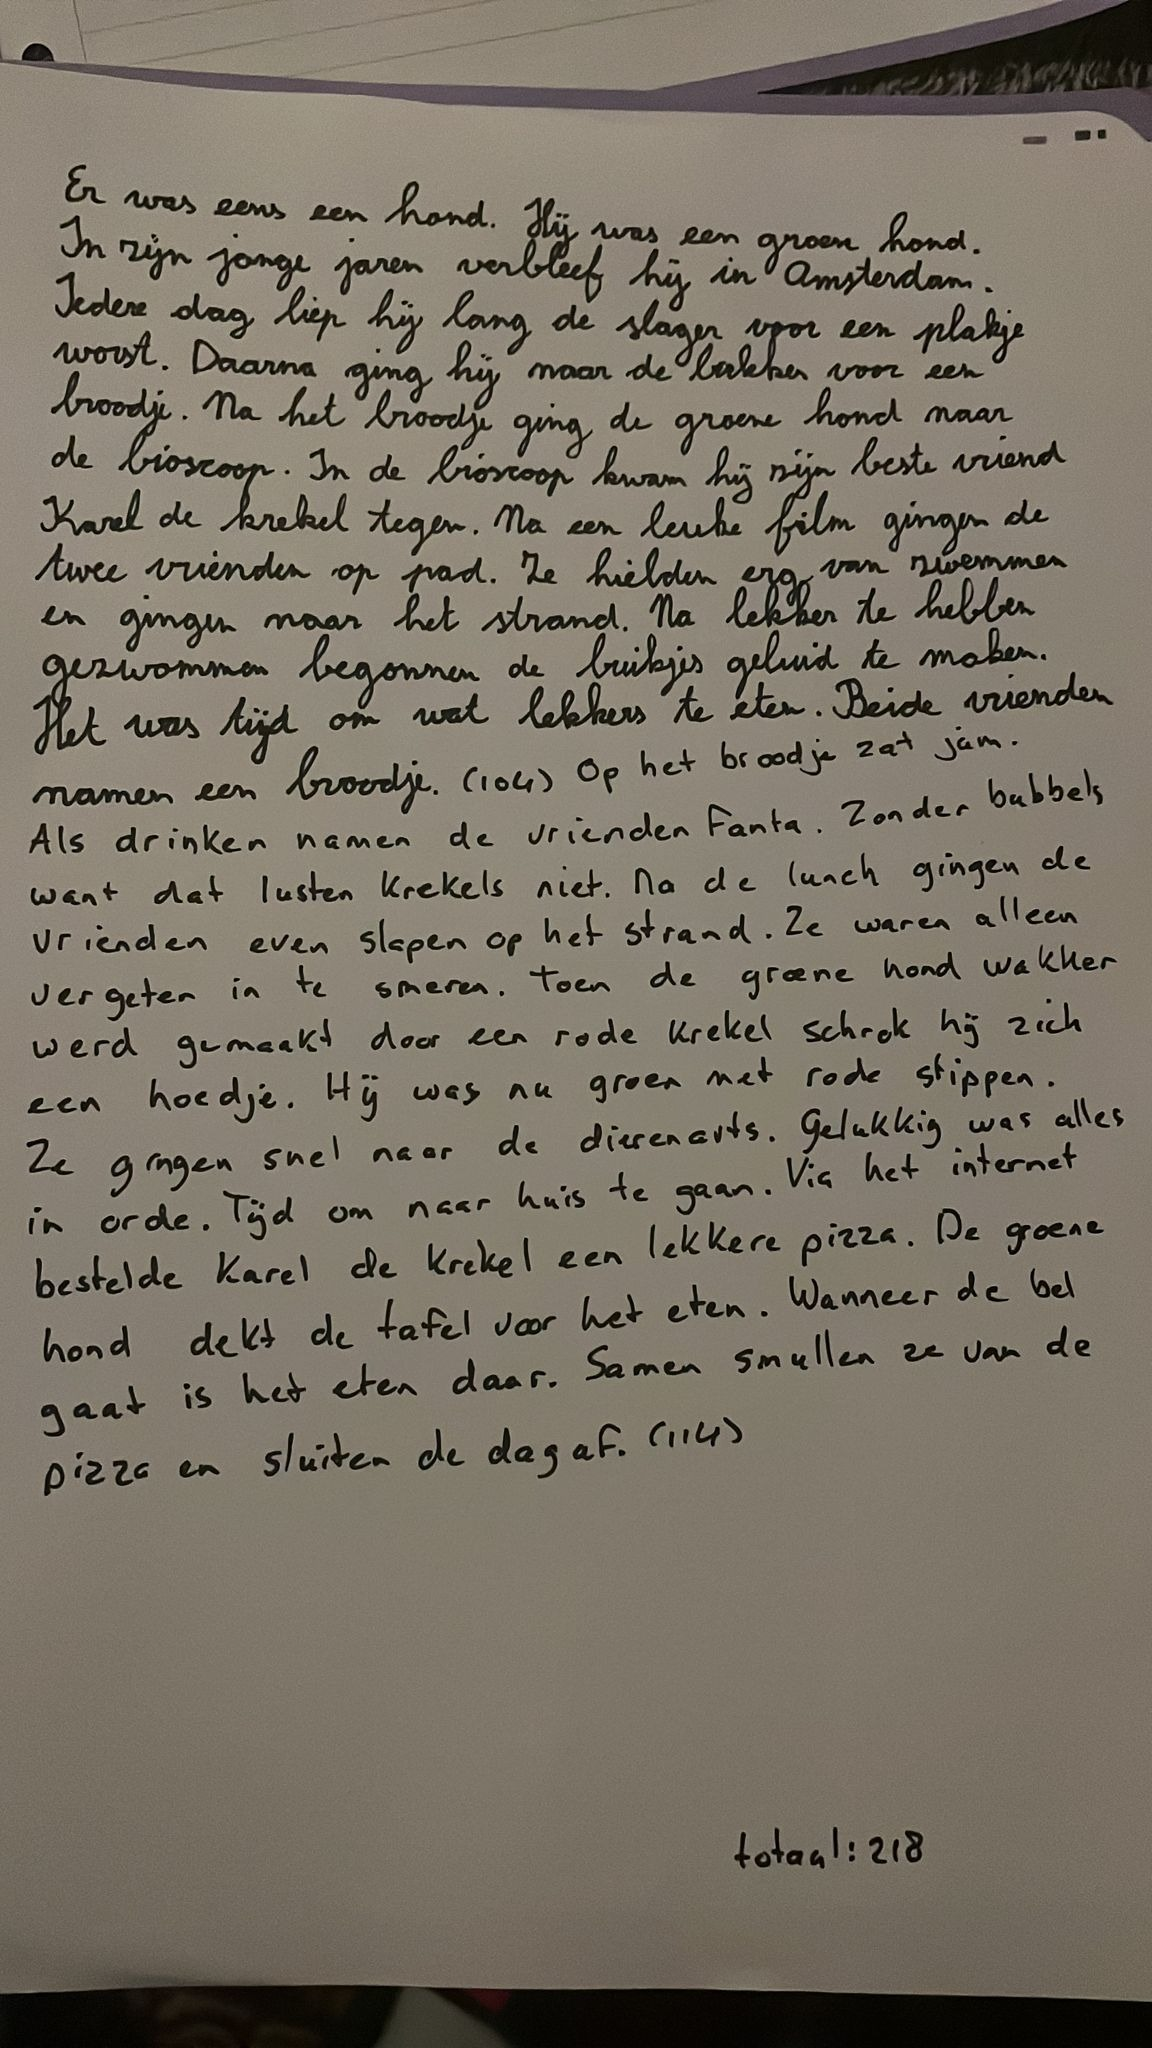 Er was eens een hond. Hij was een groene hond.
In zijn jonge jaren verbleef hij in Amsterdam.
Iedere dag liep hij lang de slager voor een plakje
worst. Daarna ging hij naar de bakker voor een
broodje. Na het broodje ging de groene hond naar
de bioscoop. In de bioscoop kwam hij zijn beste vriend
Karel de krekel tegen. Na een leuke film gingen de
twee vrienden op pad. Ze hielden erg van zwemmen
en gingen naar het strand. Na lekker te hebben
gezwommen begonnen de buikjes geluid te maken.
Het was tijd om wat lekkers te eten. Beide vrienden
namen een broodje. (104) Op het broodje zat jam.
Als drinken namen de vrienden Fanta. Zonder bubbels
want dat lusten krekels niet. Na de lunch gingen de
vrienden even slapen op het strand. Ze waren alleen
vergeten in te smeren. Toen de groene hond wakker
werd gemaakt door een rode krekel schrok hij zich
een hoedje. Hij was nu groen met rode stippen.
Ze gingen snel naar de dierenarts. Gelukkig was alles
in orde. Tijd om naar huis te gaan. Via het internet
bestelde Karel de krekel een lekkere pizza. De groene
hond dekt de tafel voor het eten. Wanneer de bel
gaat is het eten daar. Samen smullen ze van de
pizza en sluiten de dag af. (114)
totaal: 218